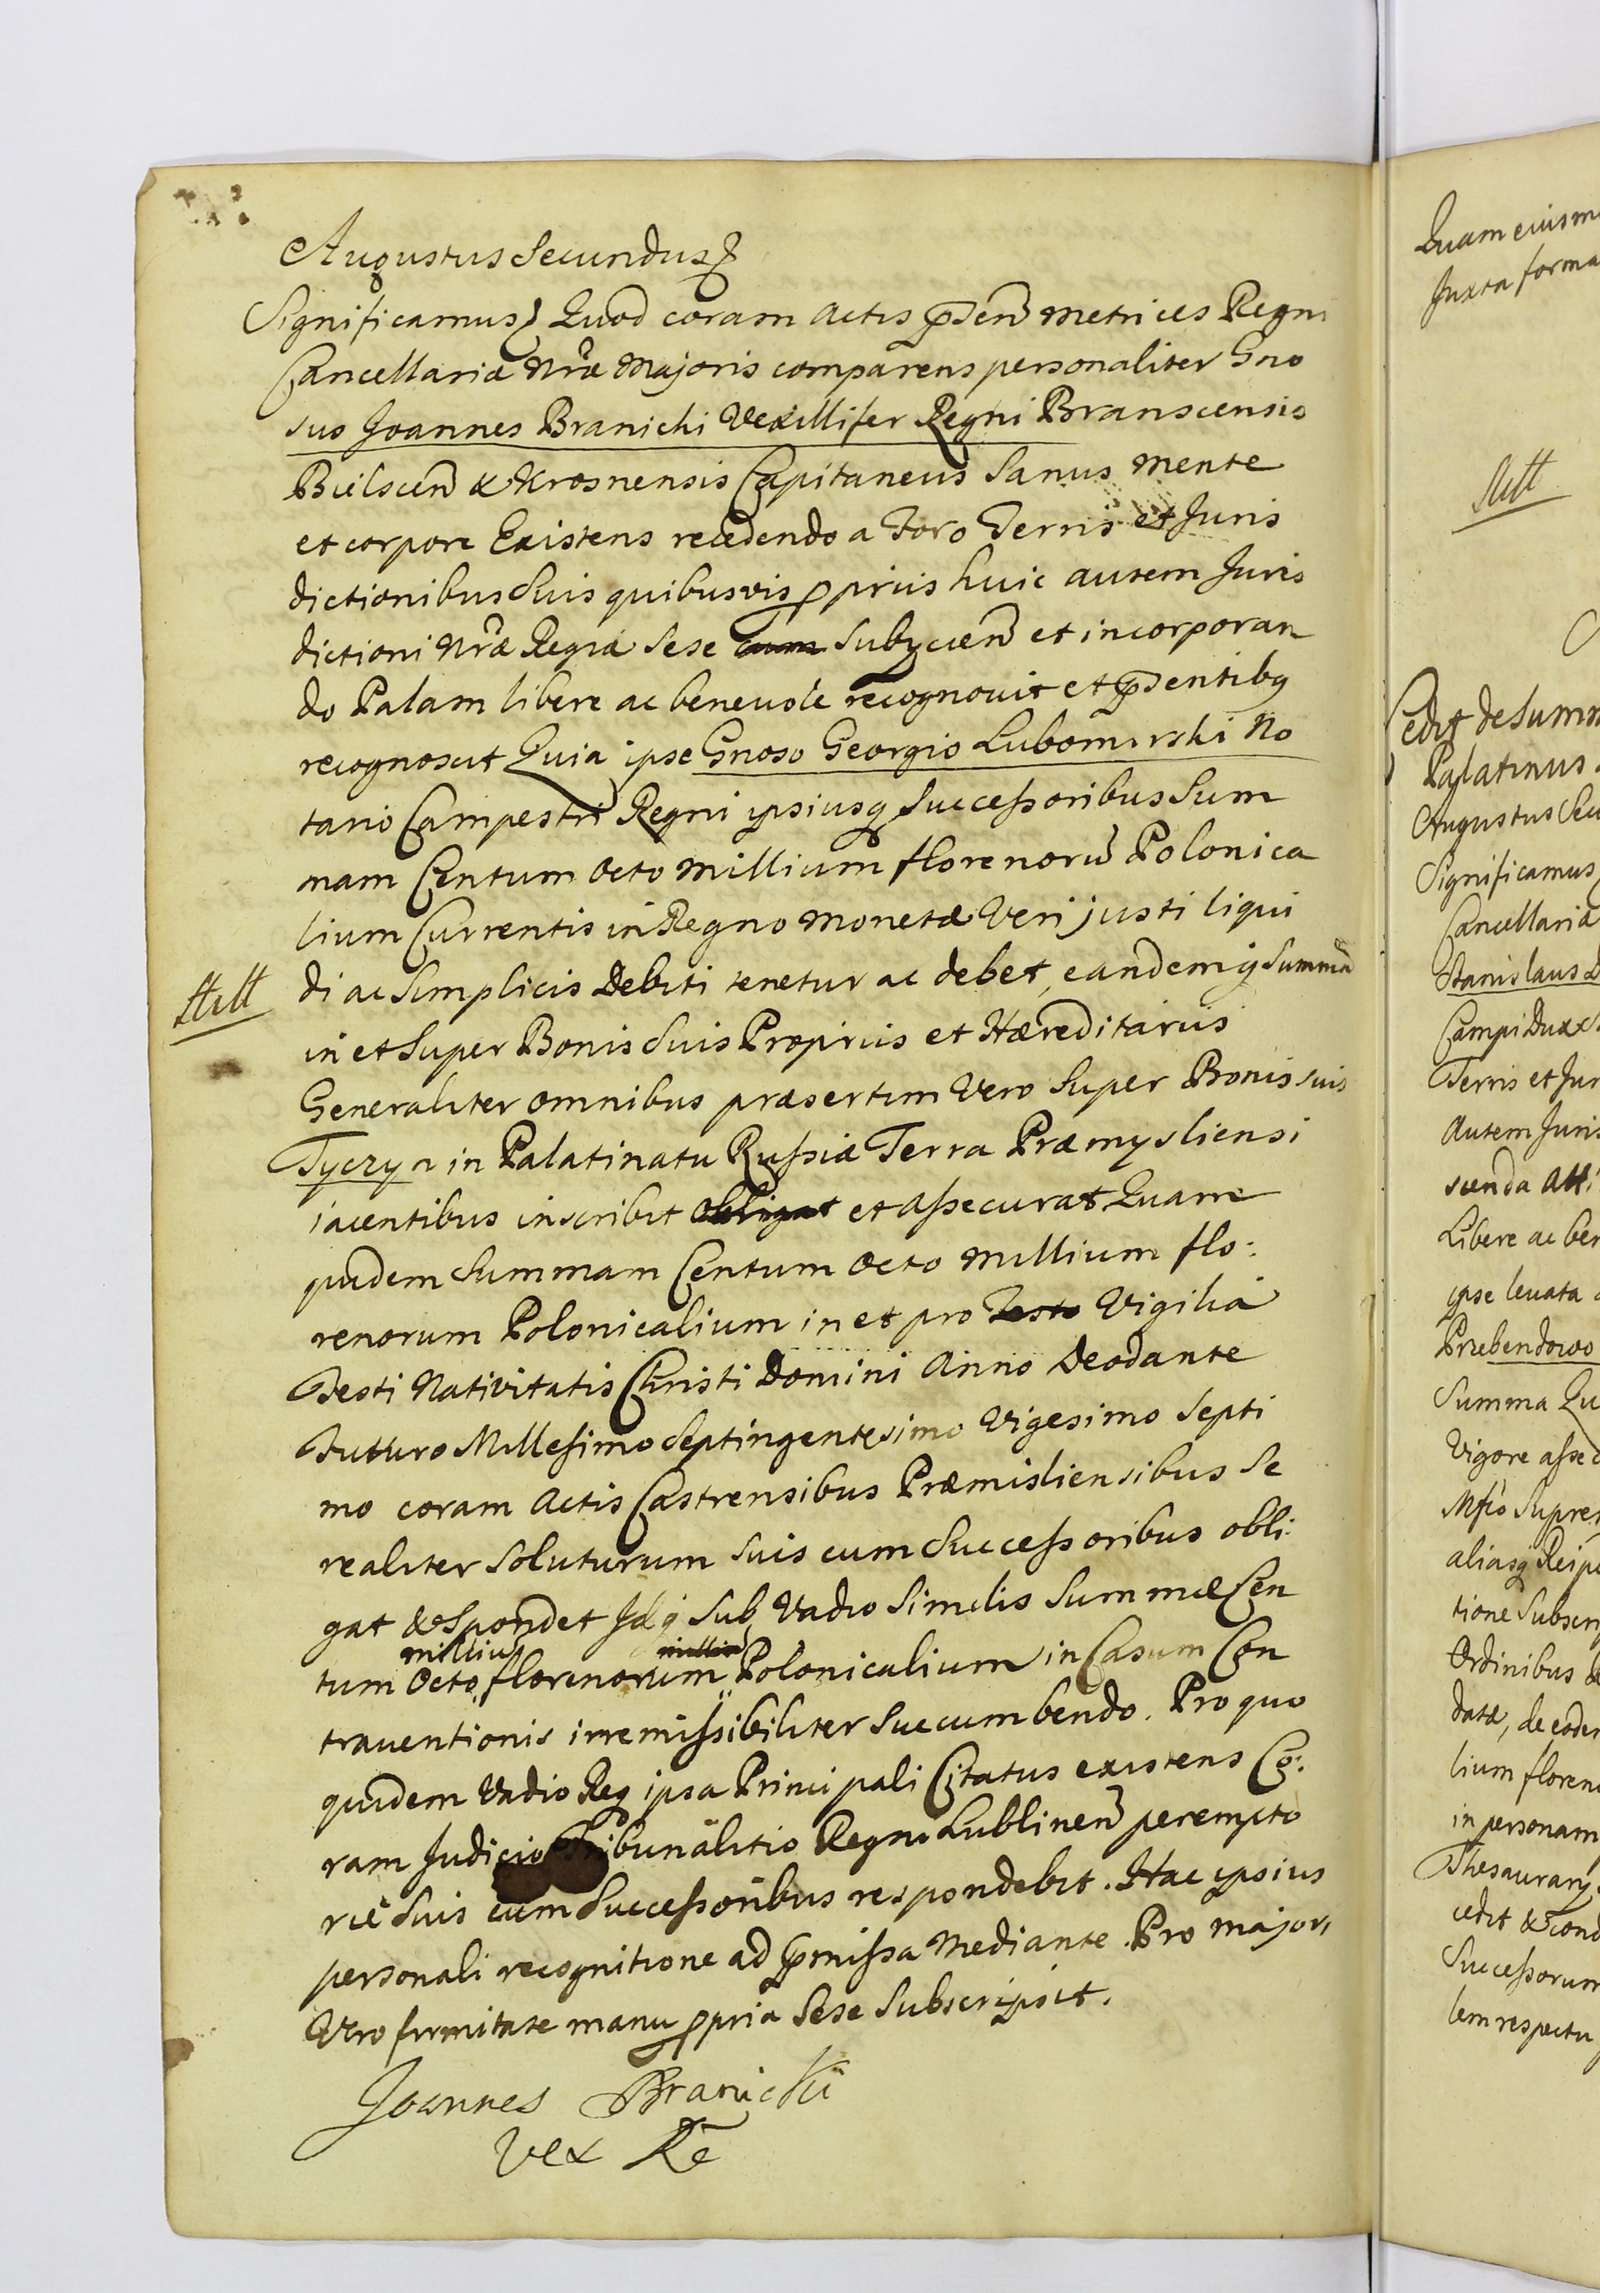 Augustus Secundus
Significamus Quod coram Actis pñden Metrices Regni
Cancellariæ Nræ Majoris comparens personaliter Gno
sus Joannes Branicki Vexillifer Regni Branscensis
Bielscen & Krosnensis Capitaneus Sanus Mente
et corpore Existens recedendo a Foro Terris et Juris
dictionibus Suis quibusvis ppriis huic autem Juris
dictioni Nræ Regiæ Sese cum Subjicien et incorporan
do Palam libere ac benevole recognovit et pñdentibq
recognoscit Quia ipse Gnoso Georgio Lubomirski No
tario Campestri Regni ipsiusq Successoribus Sum
mam Centum Octo Millium florenorũ Polonica
lium Currentis in Regno Monetæ Veri justi liqui
di ac Simplicis Debiti tenetur ac debet, eandemq Summã
in et Super Bonis Suis Propriis et Hæreditariis
Generaliter omnibus præsertim Vero Super Bonis suis
Tyczyn in Palatinatu Russiæ Terra Præmysliensi
iacentibus inscribit obligat et assecurat Quam
quidem Summam Centum Octo Millium flo:
renorum Polonicalium in et pro Festo Vigilia
Festi Nativitatis Christi Domini Anno Deodante
Futturo Millesimo Septingentesimo Vigesimo Septi
mo coram Actis Castrensibus Præmisliensibus Se
realiter Soluturum Suis cum Successoribus obli
gat & Spondet Idq Sub Vadio Similis Summæ Cen
milliũ milliũ
tum Octo florenorum Polonicalium in Casum Con
traventionis irremissibiliter Succumbendo. Pro quo
quidem Vadio Req ipsa Principali Citatus existens Co:
ram Judicio Tribunalitio Regni Lublinen perempto
rie Suis cum Successoribus respondebit. Hac ipsius
personali recognitione ad pmissa Mediante. Pro majori
Vero firmitate manu ppria Sese Subscripsit.
Joannes Branicki
Vex Re
Quam eius
Juxta forma
Cedit de Summ
Palatinus
Augustus Secu
Significamus
Cancellariæ
Stanislaus
Campi Dux
Terris et Jur
Autem Juris
Libere ac ben
ipse levata
Przebendowo
Summa Qu
Vigore asse
Mfico Supre
aliasq Reip
tione Subscri
Ordinibus
datæ, de eode
lium floren
in personam
Thesaurarij
cedit & cond
Successorum
lem respectu